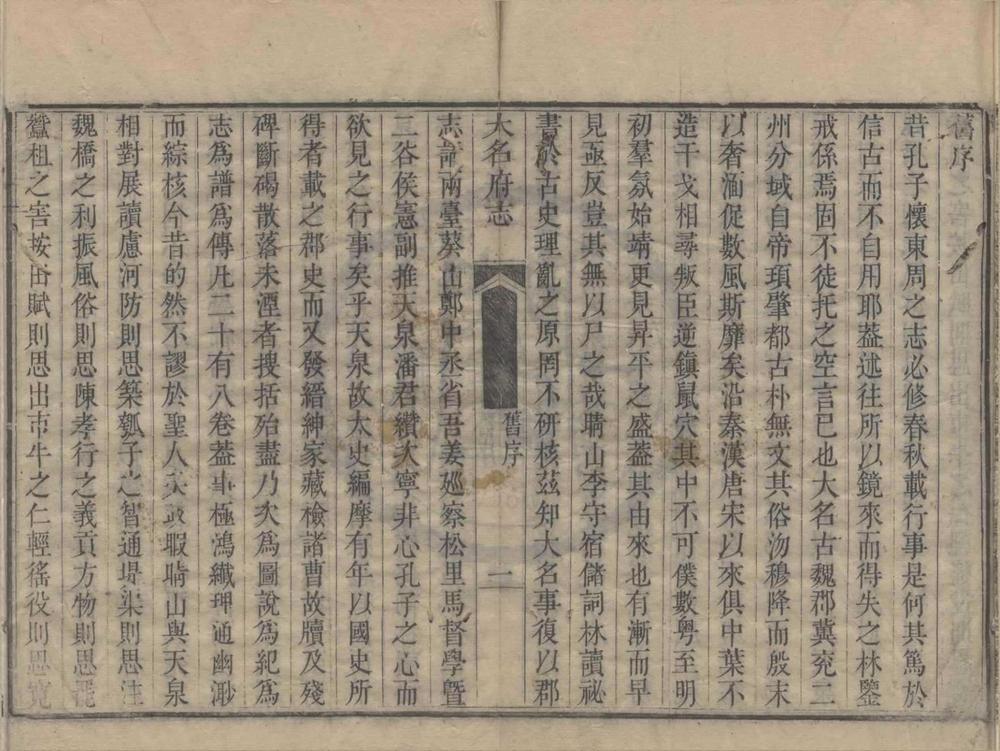 舊序
昔孔子懷東周之志必修春秋載行事是何其篤於
信古而不自用耶葢述往所以鏡來而得失之林鑒
戒係焉固不徒托之空言已也大名古魏郡冀兖二
州分域自帝頊肇都古朴無文其俗沕穆降而殷末
以奢湎促數風斯靡矣沿秦漢唐宋以來俱中葉不
造干戈相尋叛臣逆鎭鼠穴其中不可僕數粤至明
初羣氛始靖更見昇平之盛葢其由來也有漸而早
見亟反豈其無以尸之哉疄山李守宿儲詞林讀祕
書於古史理亂之原罔不研核茲知大名事復以郡
大名府志
舊序
一
志計兩臺葵山鄭中丞省吾姜廵察松里馬督學曁
三谷侯憲副推天泉潘君纘次寧非心孔子之心而
欲見之行事矣乎天泉故太史編摩有年以國史所
得者載之郡史而又發縉紳家藏檢諸曹故牘及殘
碑斷碣散落未湮者搜括殆盡乃次爲圖說爲紀爲
志爲譜爲傳凡二十有八卷葢事極鴻纖理通幽渺
而綜核今昔的然不謬於聖人矣政暇疄山與天泉
相對展讀慮河防則思築瓠子之智通堤渠則思注
魏橋之利振風俗則思陳孝行之義貢方物則思罷
蠶租之害按田賦則思出市牛之仁輕徭役則思寬